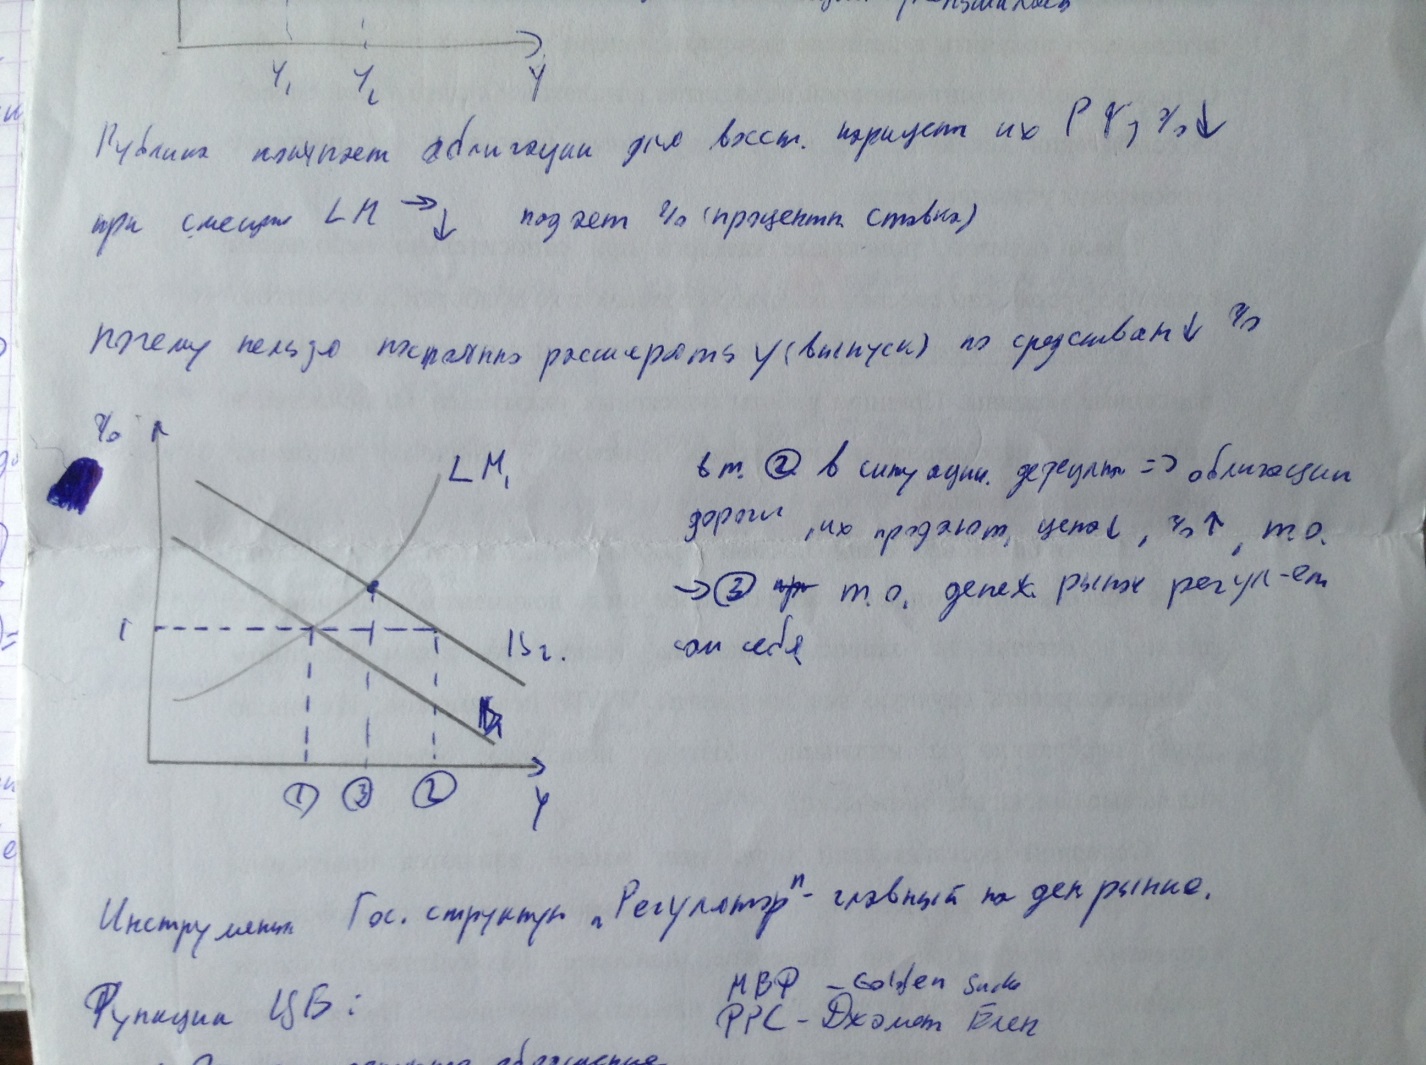 Y₁ Y₂ Y
Публика покупает облигации для восст. паритет их P ↑, % ↓
при смещен LM → ↓ падает % (процентн ставка)
Почему нельзя постоянно расширять Y (выпуск) по средствам ↓ %
%
LM₁
i
① ③ ②
Y
в т. ② в ситуации. дефецит => облигации
дороги, их продают, цена ↓, % ↑, т.о.
→ ③ т.о. денеж. рынок регул-ет
сам себя
Инструмент Гос. структур „Регулятор" - главный на ден рынке.
Функции ЦБ:
МВФ - Golden
ФРС - Джэнет Елен